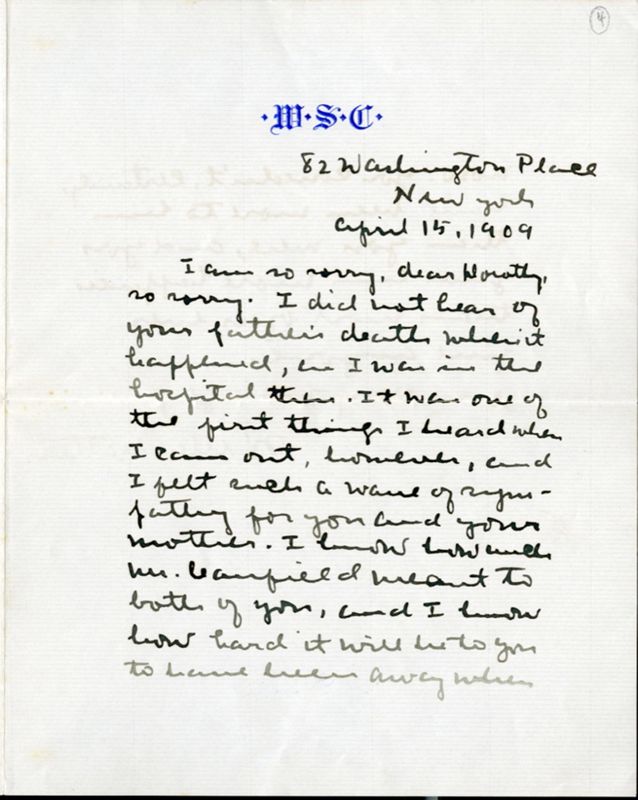 4
·W·S·C·
82 Washington Place
New York
April 15, 1909
I am so sorry, dear Dorothy,
so sorry. I did not hear of
your father's death when it
happened, as I was in the
hospital then. It was one of
the first things I heard when
I came out, however, and
I felt such a wave of sym-
pathy for you and your
mother. I know how much
Mr. Canfield meant to
both of you, and I know
how hard it will be to you
to have been away when